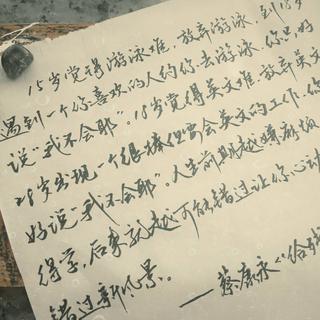 15岁觉得游泳难，放弃游泳，到18岁
遇到一个你喜欢的人约你去游泳，你只好
说“我不会耶”。18岁觉得英文难，放弃英文
28岁出现一个很棒但要会英文的工作，你
好说“我不会耶”。人生前期越嫌麻烦
得学，后来就越可能错过让你心动
错过新风景。
——蔡康永《给残